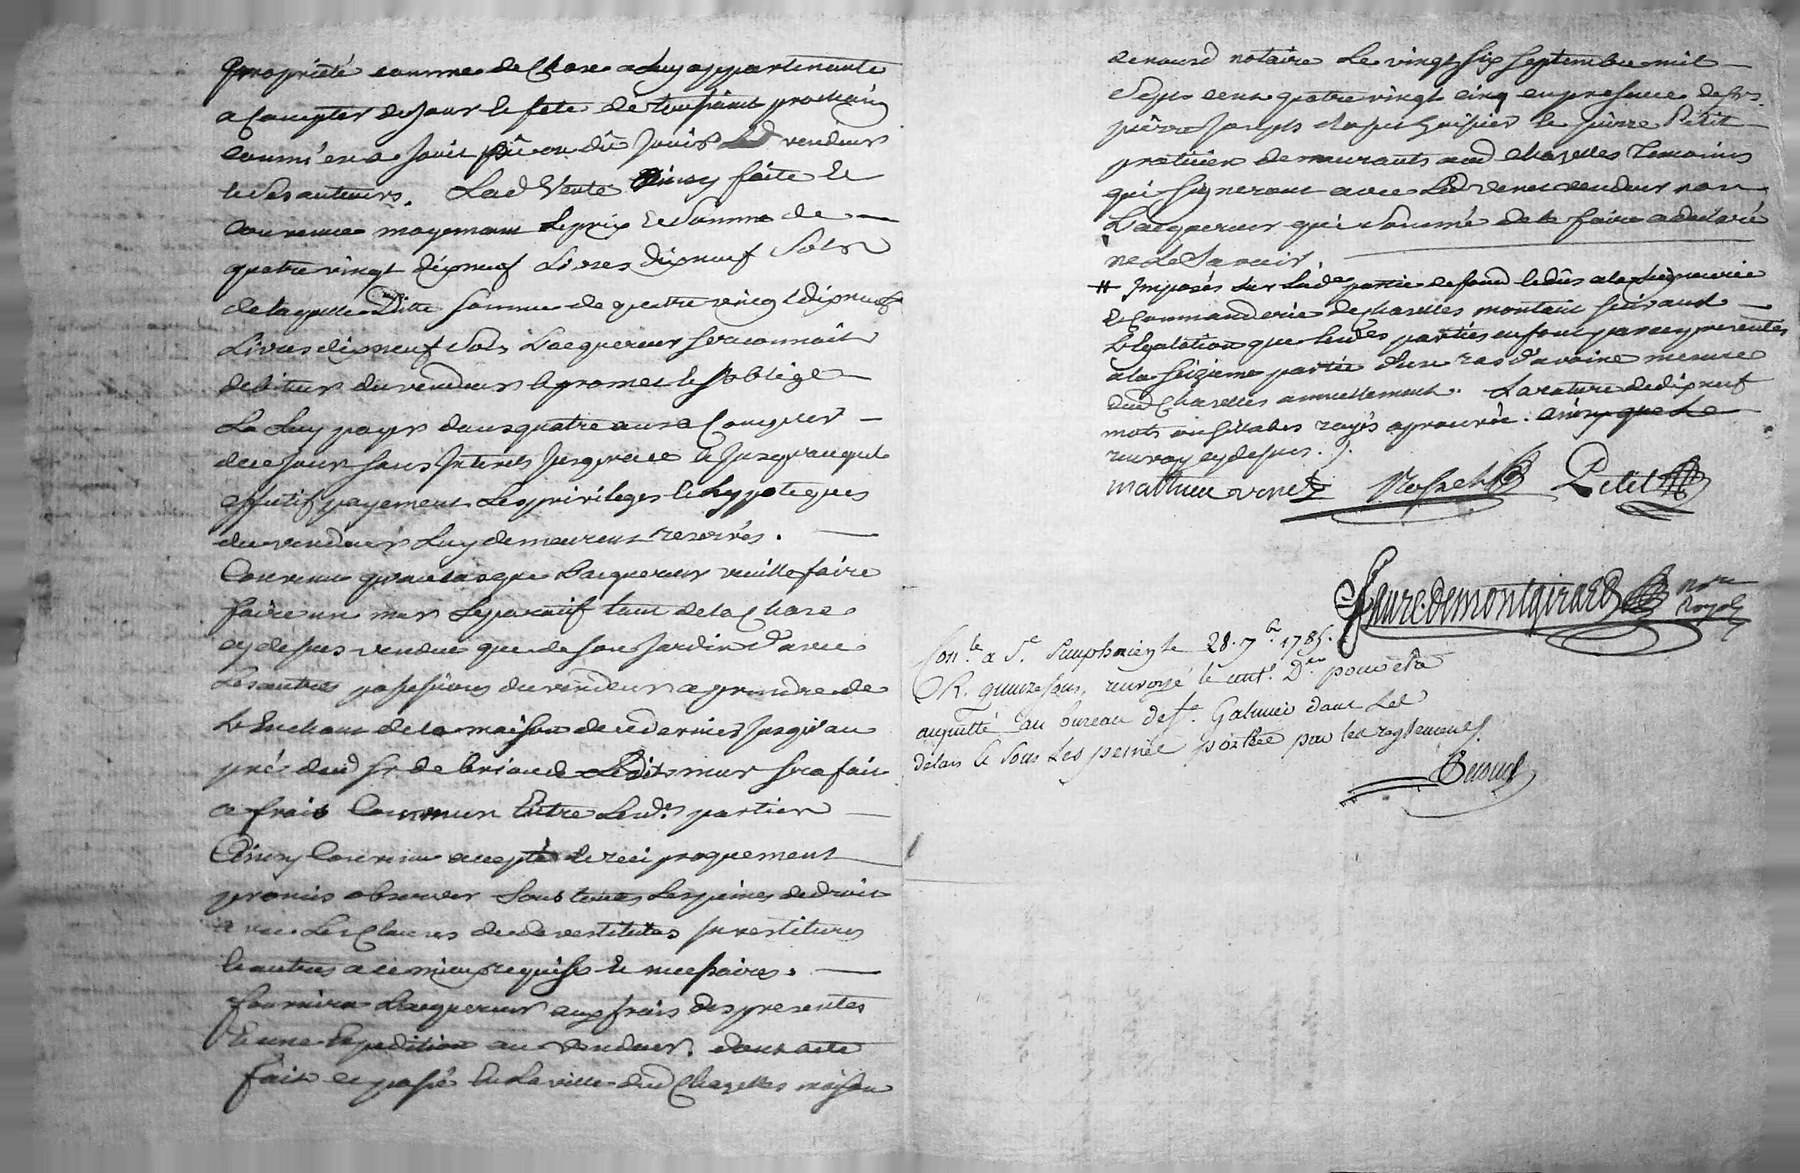 proprieté comme de Chose a Luy appartenante
a Compter du Jour & fete de toussaint prochain
comm'en a Jouit pû ou dû Jouir Led vendeur
& Ses auteurs. Lad Vente Ainsy faite &
Convenue moyenant Le prix & Somme de
quatre vingt dixneuf Livres dixneuf Sols
de laquelle Ditte Somme de quatre vingt dixneuf
Livres dixneuf Sols L'acquereur Se reconnoit
debiteur du vendeur & promet & S'oblige
La Luy payer dans quatre ans a Compter
de ce Jour Sans Interets Jusqu'a ce & Jusqu'auquel
effectif payement Les privileges & hypoteques
du vendeur Luy demeurent reservés.
Convenu qu'au cas que L'acquereur veuille faire
faire un mur Separatif tant de la Chose
cy dessus vendue que de Son Jardin D'avec
Les autres possessions du vendeur a prendre de
L'Enchant de la maison de ce dernier Jusqu'au
pré dud Sr de briande Ledit mur Sera fait
a frais Commun Entre Lesd. parties
Ainsy Convenu accepté & reciproquement
promis observer Sous toutes Les peines de droit
avec Les Clauses de devestitures Investitures
& autres a ce mieux requises & necessaires.
fournira L'acquereur aux frais des presentes
& une Expedition au vendeur. dont acte
fait et passé En La ville dud Chazelles maison
de nousd notaire Le vingt Six Septembre mil
Sept cent quatre vingt cinq en presence de Srs.
pierre Joseph huissier & pierre Petit
praticien demeurants aud Chazelles Temoins
qui Signeront avec Led venet vendeur non
L'acquereur qui Sommé de le faire a declaré
ne Le Savoir.
# Imposés Sur Lade partie de fond & dûs a la Seigneurie
& Commanderie de Chazelles montant Suivant
L'Egalation que Lesdes parties en font par ces presentes
a la Seizieme partie d'un ras d'avoine mesure
dud Chazelles annuellement. La rature de dixneuf
mots ou Sillabes rayés aprouvée. ainsy que Le
renvoy cy dessus.
mathieu venet Petit
Faure.demontgirard nore Royal
Conle a St. Simphorien le 28. 7b. 1785.
R. quinze sous, renvoyé le cent. Dr pour etre
acquitté au bureau de St. Galmier dans Les
delais & Sous Les peines portées par les reglements.